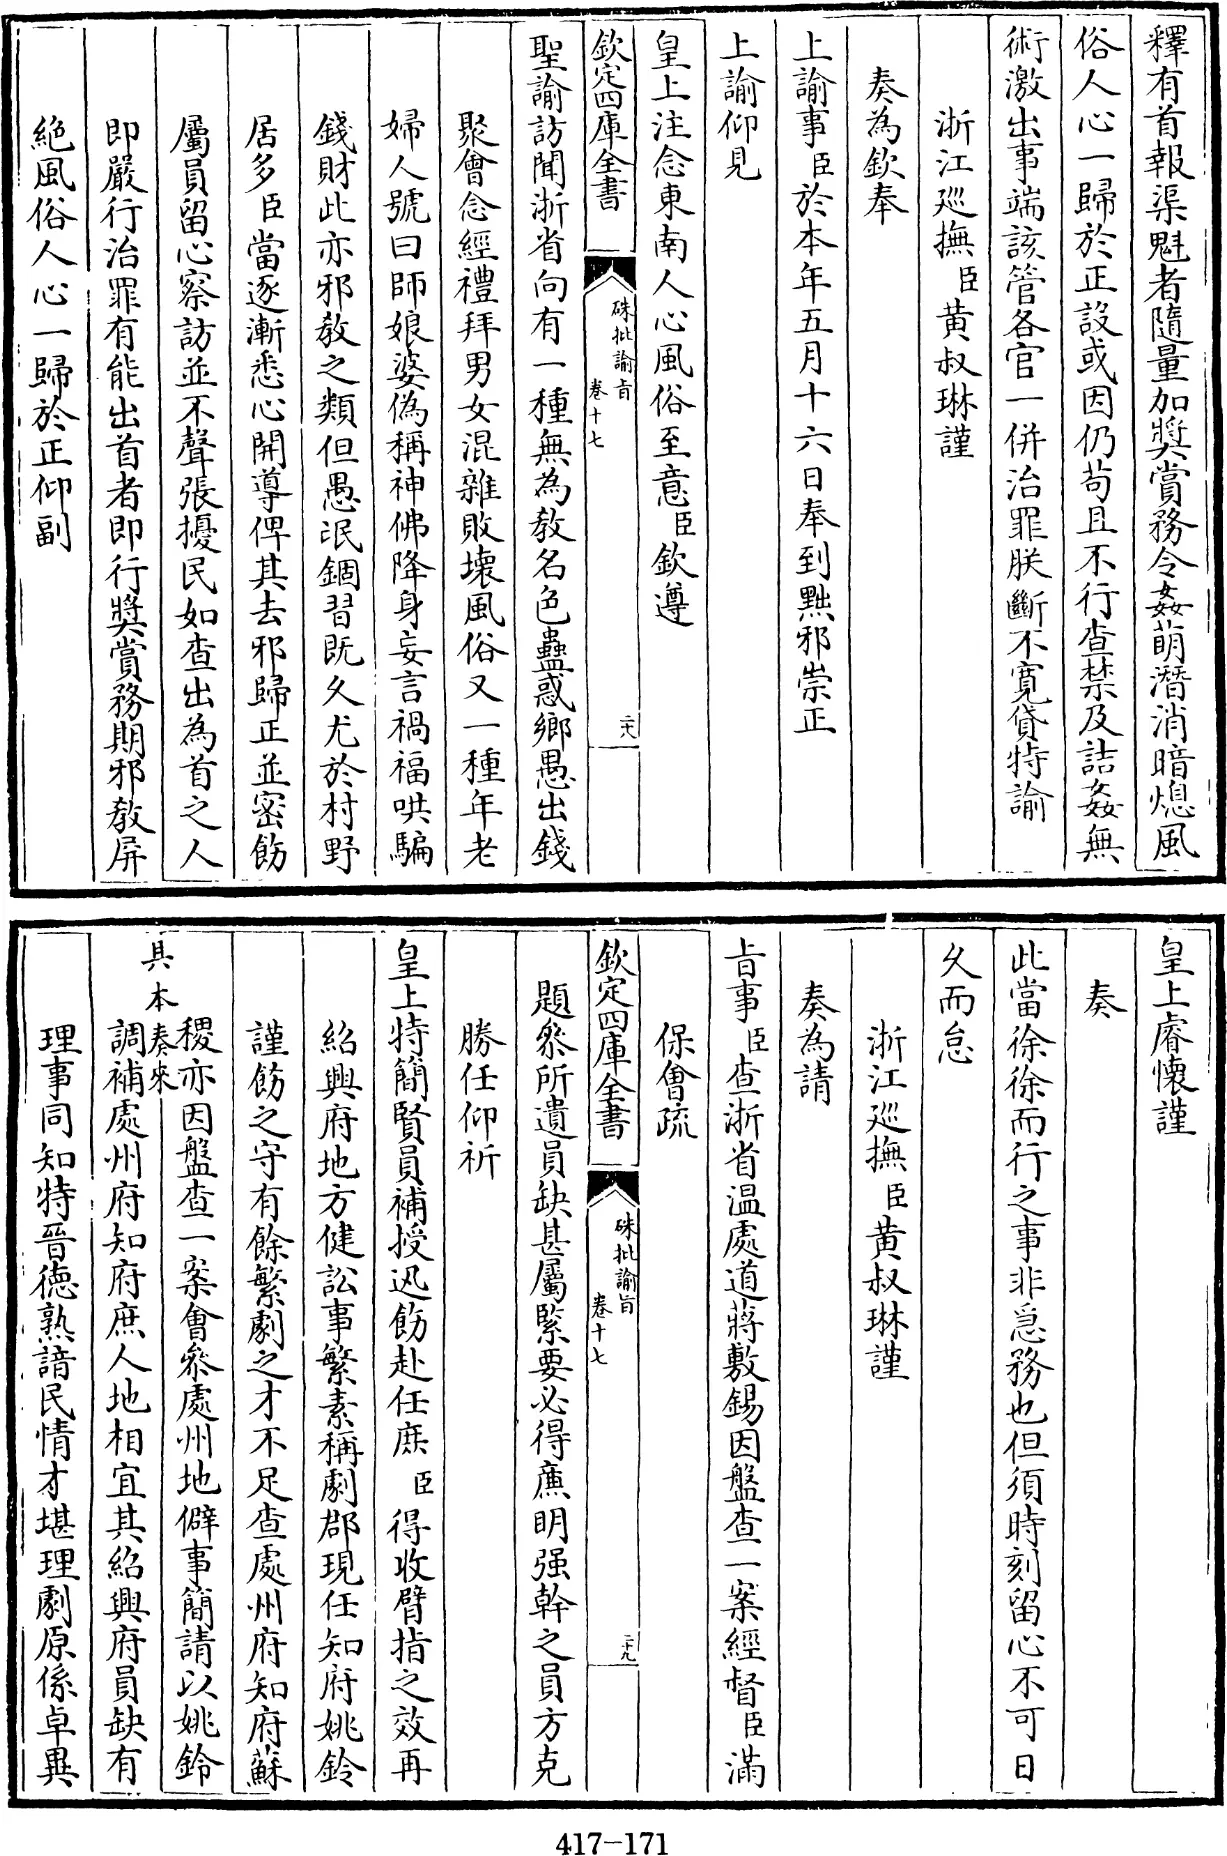 釋有首報渠魁者隨量加奬賞務令姦萌潛消暗熄風
俗人心一歸於正設或因仍苟且不行查禁及詰姦無
術激出事端該管各官一併治罪朕斷不寛貸特諭
浙江廵撫臣黄叔琳謹
奏為欽奉
上諭事臣於本年五月十六日奉到黜邪崇正
上諭仰見
皇上注念東南人心風俗至意臣欽遵
欽定四庫全書
硃批諭旨
卷十七
二十八
聖諭訪聞浙省向有一種無為教名色蠱惑鄉愚出錢
聚會念經禮拜男女混雜敗壞風俗又一種年老
婦人號曰師娘婆偽稱神佛降身妄言禍福哄騙
錢財此亦邪教之類但愚氓錮習既久尤於村野
居多臣當逐漸悉心開導俾其去邪歸正並密飭
屬員留心察訪並不聲張擾民如查出為首之人
即嚴行治罪有能出首者即行奬賞務期邪教屏
絶風俗人心一歸於正仰副
皇上睿懷謹
奏
此當徐徐而行之事非急務也但須時刻留心不可日
久而怠
浙江廵撫臣黄叔琳謹
奏為請
旨事臣查浙省温處道蔣敷錫因盤查一案經督臣滿
保㑹疏
欽定四庫全書
硃批諭旨
卷十七
二十九
題叅所遺員缺甚屬緊要必得亷明强幹之員方克
勝任仰祈
皇上特簡賢員補授迅飭赴任庶臣得收臂指之效再
紹興府地方健訟事繁素稱劇郡現任知府姚鈴
謹飭之守有餘繁劇之才不足查處州府知府蘇
稷亦因盤查一案㑹叅處州地僻事簡請以姚鈴
具本奏來
調補處州府知府庶人地相宜其紹興府員缺有
理事同知特晉徳熟諳民情才堪理劇原係卓異
417-171